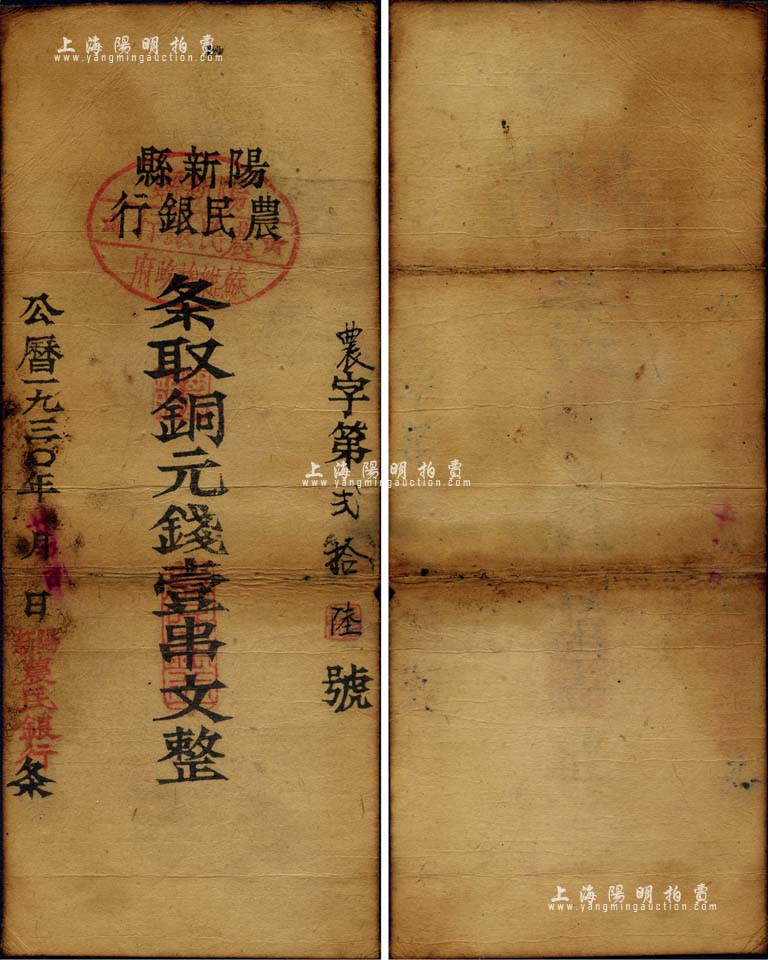 上海陽明拍賣
www.yangmingauction.com
陽新縣
農民銀行
蘇維埃政府
農字第弍拾陸號
条取銅元錢壹串文整
公曆一九三〇年 月 日
陽新農民銀行
条
上海陽明拍賣
www.yangmingauction.com
上海陽明拍賣
www.yangmingauction.com